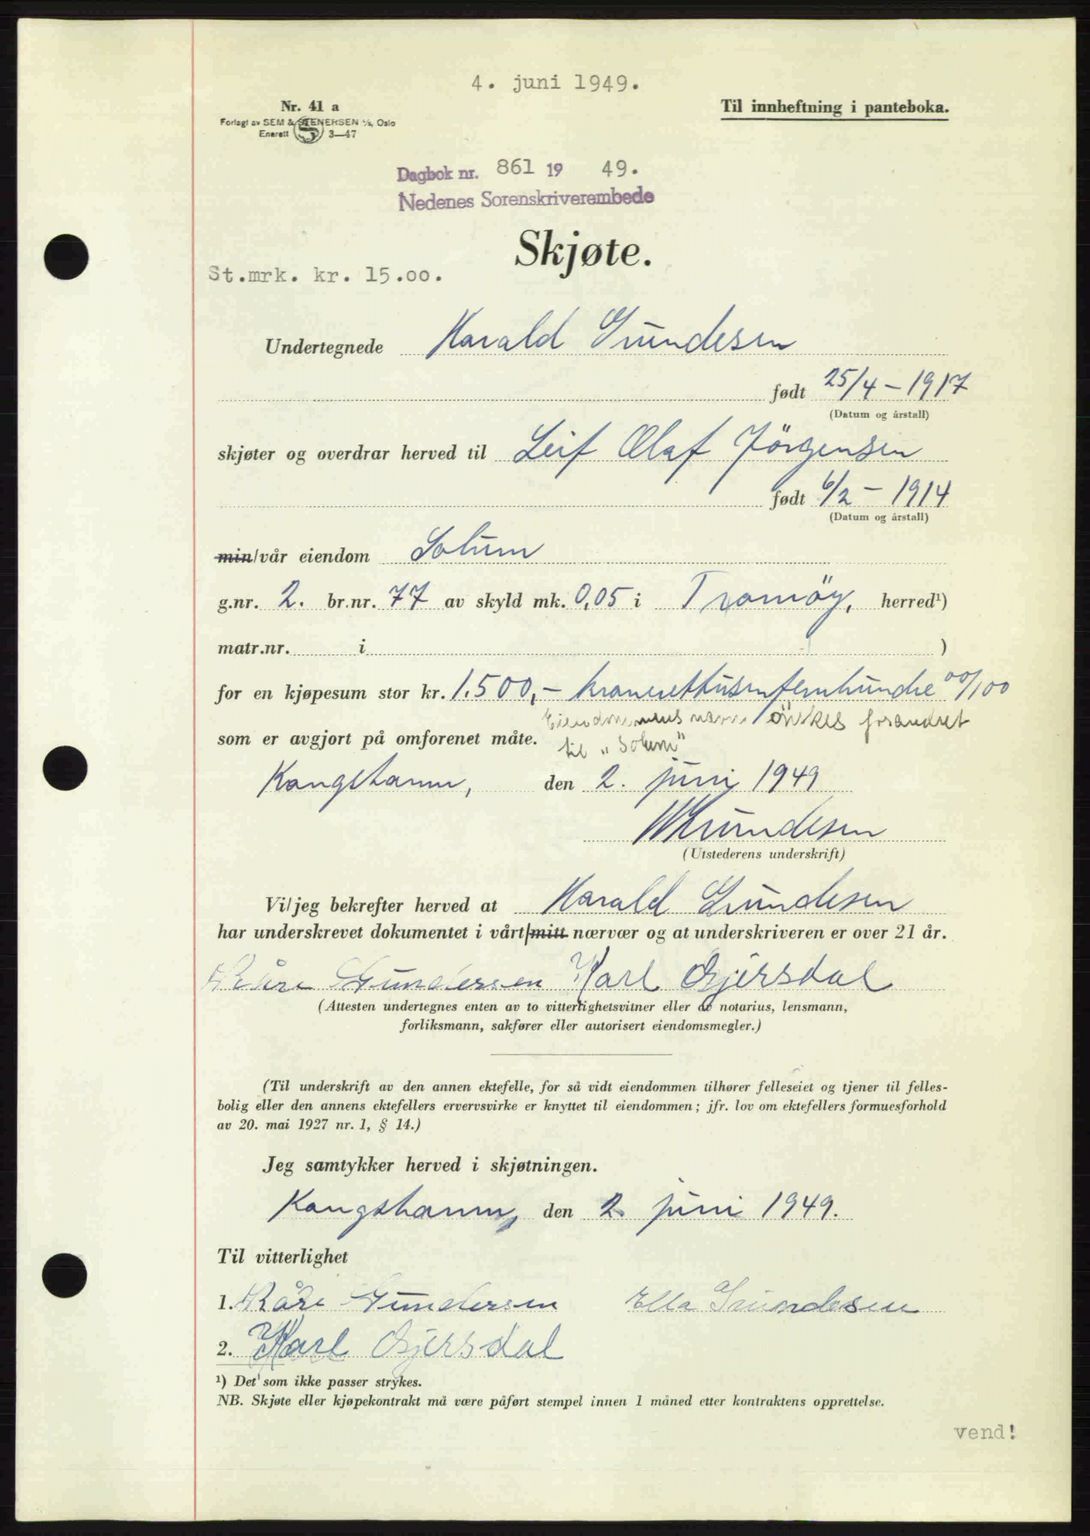 4. juni 1949.
Nr. 41 a
Til innheftning i panteboka.
Forlagt av SEM & STENERSEN A/S, Oslo
Enerett S 3—47
Dagbok nr. 861 19 49.
Nedenes Sorenskriverembede
Skjøte.
St.mrk. kr. 15.00.
Undertegnede Harald Grundesen
født 25/4 - 1917
(Datum og årstall)
skjøter og overdrar herved til Leif Olaf Jörgensen
født 6/2 - 1914
(Datum og årstall)
min/vår eiendom Solum
g.nr. 2. br.nr. 77 av skyld mk. 0,05 i Tromöy, herred¹)
matr.nr. i )
for en kjøpesum stor kr. 1.500,- kroneretthusenfemhundre 00/100
Eiendommens navn önskes forandret
som er avgjort på omforenet måte. til "Solum"
Kongshamn, den 2. juni 1949
HGrundesen
(Utstederens underskrift)
Vi/jeg bekrefter herved at Harald Grundesen
har underskrevet dokumentet i vårt/mitt nærvær og at underskriveren er over 21 år.
Kåre Gundersen Karl Gjersdal
(Attesten undertegnes enten av to vitterlighetsvitner eller av notarius, lensmann,
forliksmann, sakfører eller autorisert eiendomsmegler.)
(Til underskrift av den annen ektefelle, for så vidt eiendommen tilhører felleseiet og tjener til felles-
bolig eller den annens ektefellers ervervsvirke er knyttet til eiendommen; jfr. lov om ektefellers formuesforhold
av 20. mai 1927 nr. 1, § 14.)
Jeg samtykker herved i skjøtningen.
Kongshamn, den 2. juni 1949.
Til vitterlighet
1. Kåre Gundersen Ella Grundesen
2. Karl Gjersdal
¹) Det som ikke passer strykes.
NB. Skjøte eller kjøpekontrakt må være påført stempel innen 1 måned etter kontraktens opprettelse.
vend!